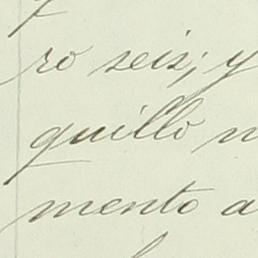 ro seis; y
quillo n
mento a